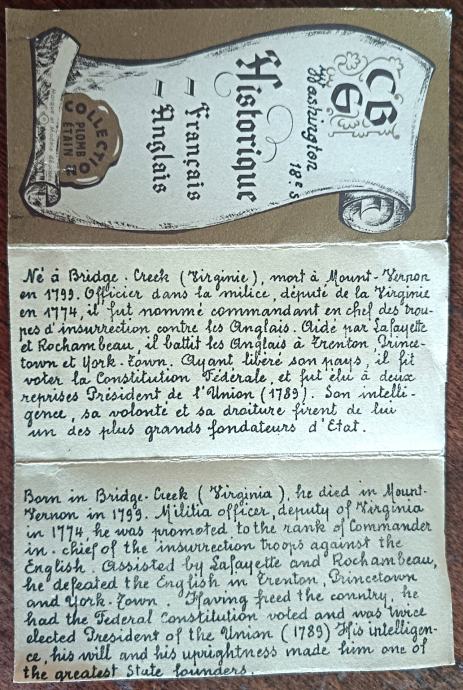 CBG
Washington
18e s
Historique
- Français
- Anglais
COLLECTION
PLOMB
ÉTAIN
Né à Bridge-Creek (Virginie), mort à Mount-Vernon
en 1799. Officier dans la milice, député de la Virginie
en 1774, il fut nommé commandant en chef des trou-
pes d'insurrection contre les Anglais. Aidé par Lafayette
et Rochambeau, il battit les Anglais à Trenton, Prince-
town et York-Town. Ayant libéré son pays, il fit
voter la Constitution Fédérale, et fut élu à deux
reprises Président de l'Union (1789). Son intelli-
gence, sa volonté et sa droiture firent de lui
un des plus grands fondateurs d'Etat.
Born in Bridge-Creek (Virginia), he died in Mount-
Vernon in 1799. Militia officer, deputy of Virginia
in 1774, he was promoted to the rank of Commander
in-chief of the insurrection troops against the
English. Assisted by Lafayette and Rochambeau,
he defeated the English in Trenton, Princetown
and York-Town. Having freed the country, he
had the Federal Constitution voted and was twice
elected President of the Union (1789) His intelligen-
ce, his will and his uprightness made him one of
the greatest State founders.